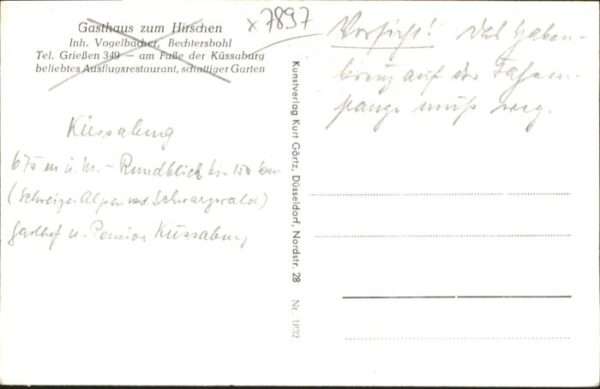 Gasthaus zum Hirschen
Inh. Vogelbacher, Bechtersbohl
Tel. Grießen 349 — am Fuße der Küssaburg
beliebtes Ausflugsrestaurant, schattiger Garten
x 7897
Vorsicht! Das Haken-
kreuz auf der Fahnen-
stange muß weg.
Küssaburg
675 m ü. M. - Rundblick bis 150 km
(Schweizer Alpen und Schwarzwald)
Gasthof u. Pension Küssaburg
Kunstverlag Kurt Görtz, Düsseldorf, Nordstr. 28
Nr.